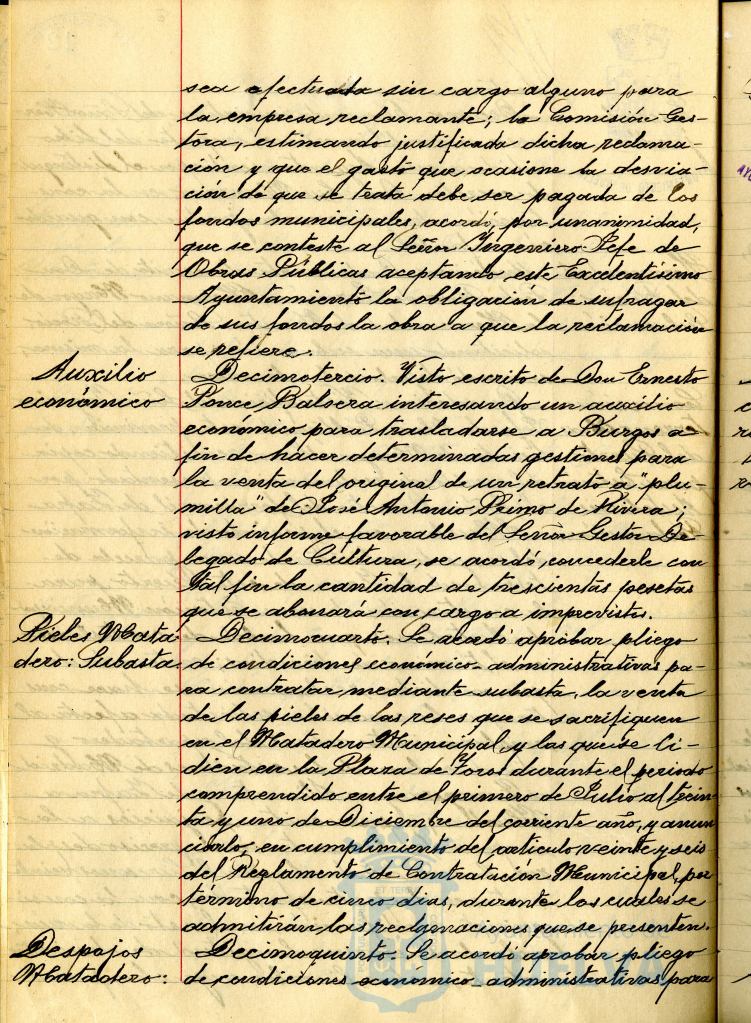 sea efectuada sin cargo alguno para
la empresa reclamante; la Comisión Ges-
tora, estimando justificada dicha reclama-
ción y que el gasto que ocasione la desvia-
ción de que se trata debe ser pagada de los
fondos municipales, acordó, por unanimidad,
que se conteste al Señor Ingeniero Jefe de
Obras Públicas aceptando este Excelentísimo
Ayuntamiento la obligación de sufragar
de sus fondos la obra a que la reclamación
se refiere.
Auxilio
económico
Decimotercio. Visto escrito de Don Ernesto
Ponce Balsera interesando un auxilio
económico para trasladarse a Burgos a
fin de hacer determinadas gestiones para
la venta del original de un retrato a "plu-
milla" de José Antonio Primo de Rivera;
visto informe favorable del Señor Gestor De-
legado de Cultura, se acordó, concederle con
tal fin la cantidad de trescientas pesetas
que se abonará con cargo a imprevistos.
Pieles Mata
dero: Subasta
Decimocuarto. Se acordó aprobar pliego
de condiciones económico-administrativas pa-
ra contratar mediante subasta, la venta
de las pieles de las reses que se sacrifiquen
en el Matadero Municipal, y las que se li-
dien en la Plaza de Toros durante el periodo
comprendido entre el primero de Julio al trein-
ta y uno de Diciembre del corriente año, y anun
ciarlo, en cumplimiento del artículo veinte y seis
del Reglamento de Contratación Municipal, por
término de cinco días, durante los cuales se
admitirán las reclamaciones que se presenten.
Despojos
Matadero:
Decimoquinto. Se acordó aprobar pliego
de condiciones económico-administrativas para